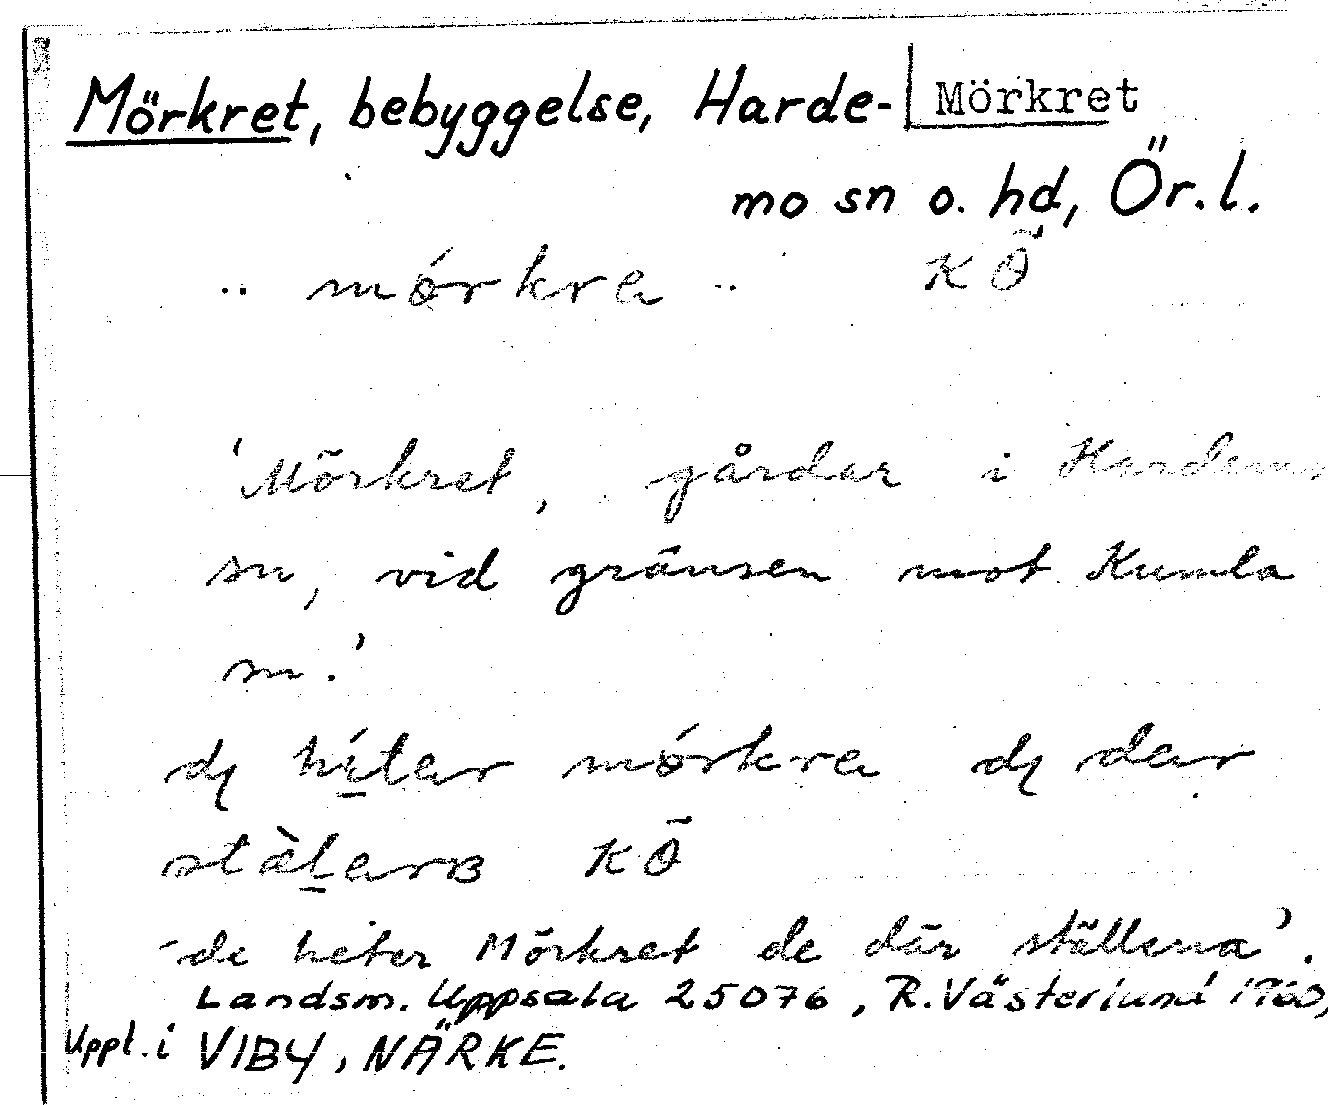 Mörkret, bebyggelse, Harde- Mörkret
mo sn o. hd, Ör. l.
.. mǿrkra .. KÖ
'Mörkret, gårdar i Hardemo
sn, vid gränsen mot Kumla
sn.'
mǿrkra dar
KÖ
'de heter Mörkret de där ställena'.
Landsm. Uppsala 25076, R. Västerlund 1960,
Uppt. i VIBY, NÄRKE.